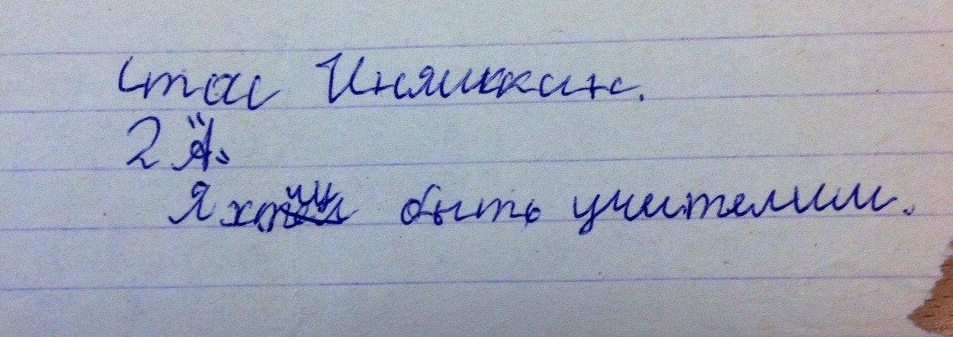 Стас Иняшкин.
2 "А"
Я хочу быть учителим.